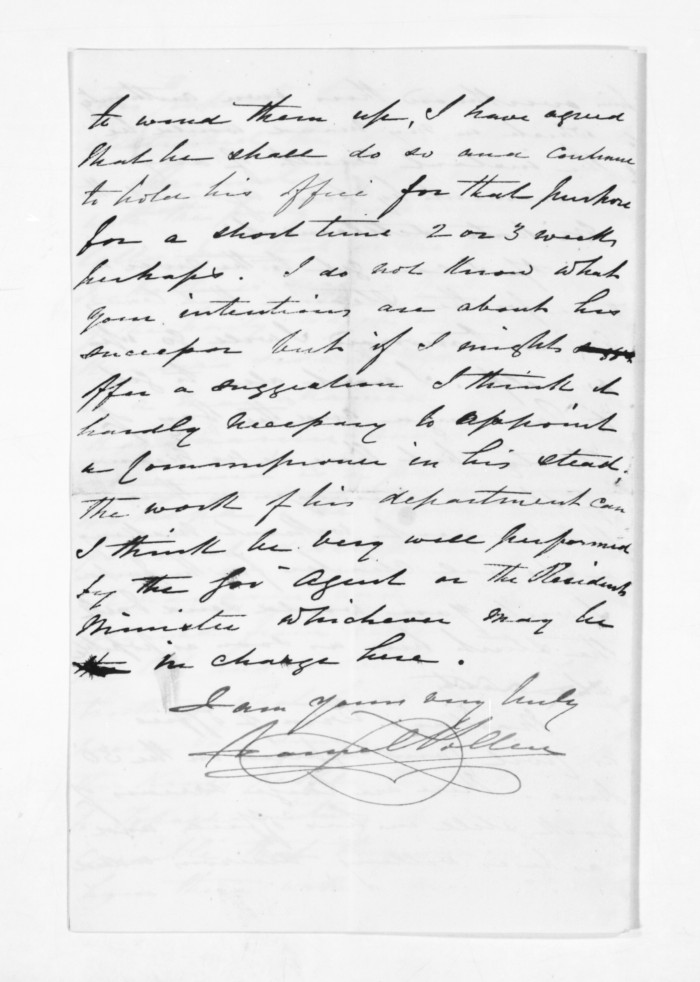 to wind them up, I have agreed
that he shall do so and continue
to hold his office for that purpose
for a short time 2 or 3 weeks
perhaps. I do not know what
your intentions are about his
successor but if I might
offer a suggestion I think it
hardly necessary to appoint
a Commissioner in his stead,
the work of his department can
I think be very well performed
by the Govt Agent or the Resident
Minister whichever may be
in charge here.
I am yours very truly
Daniel Pollen